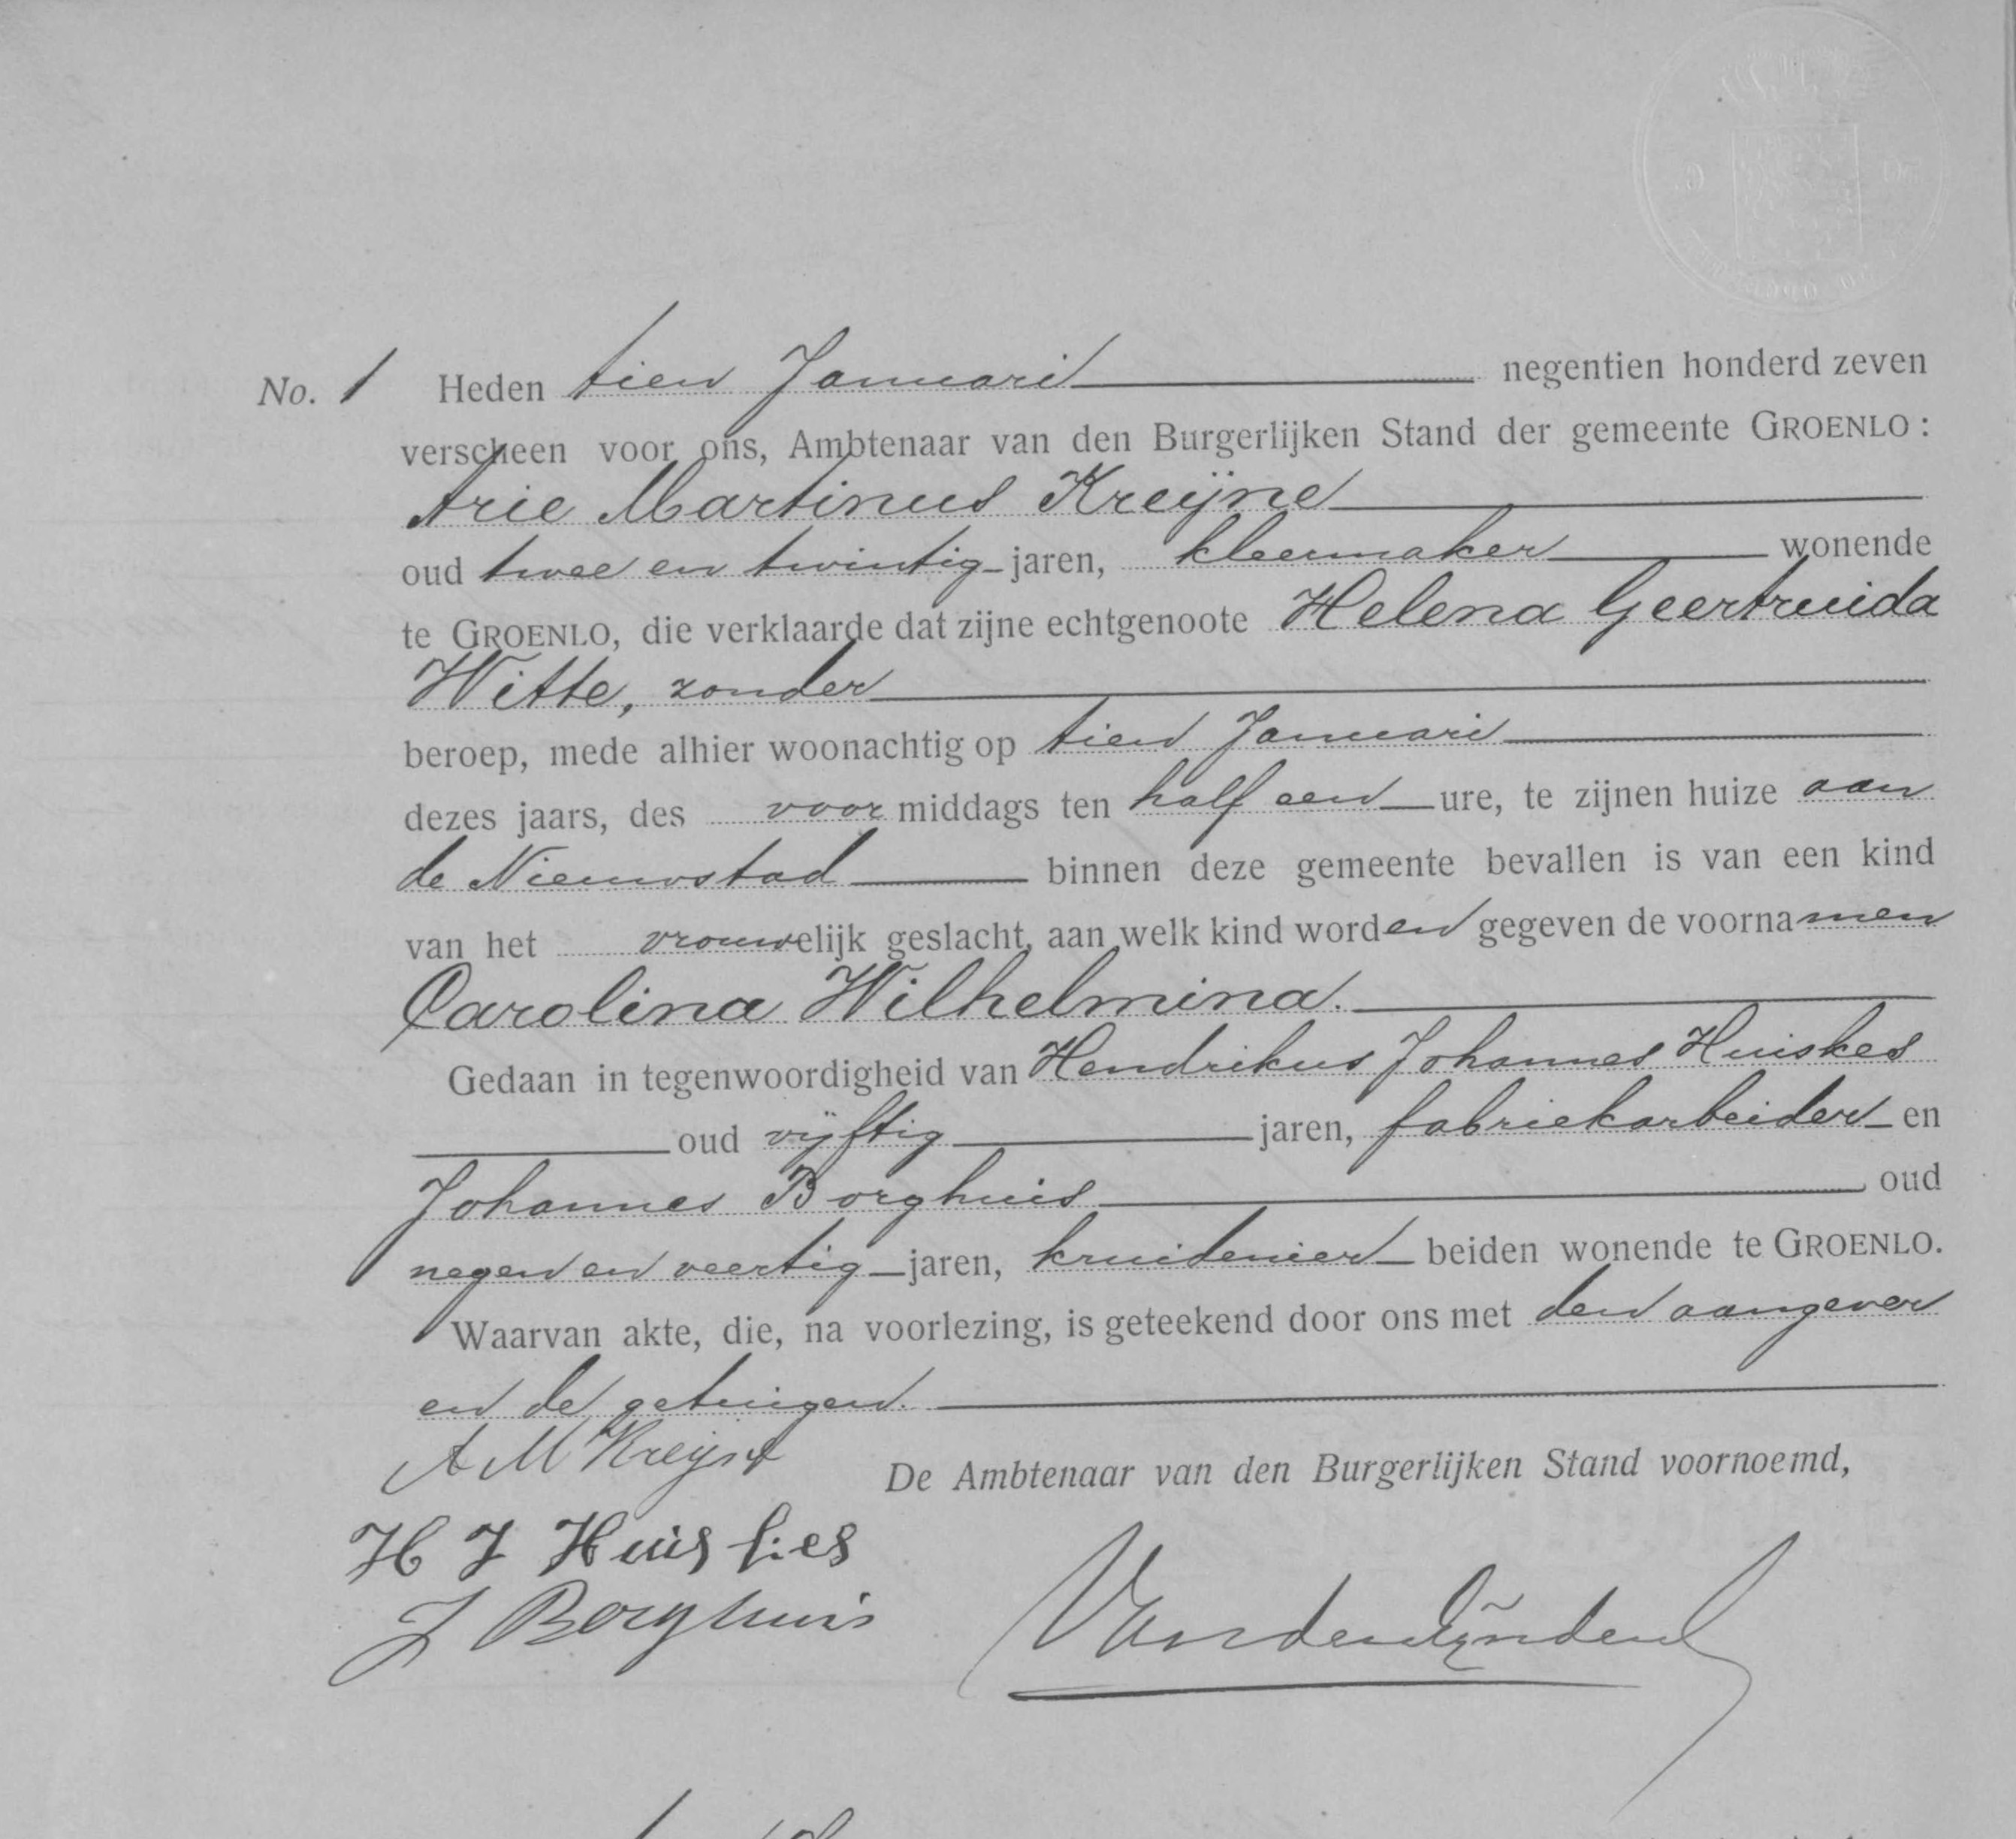 No. 1 Heden tien Januari negentien honderd zeven
verscheen voor ons, Ambtenaar van den Burgerlijken Stand der gemeente GROENLO:
Arie Martinus Kreijne
oud twee en twintig jaren, kleermaker wonende
te GROENLO, die verklaarde dat zijne echtgenoote Helena Geertruida
Witte, zonder
beroep, mede alhier woonachtig op tien Januari
dezes jaars, des voor middags ten half een ure, te zijnen huize aan
de Nieuwstad binnen deze gemeente bevallen is van een kind
van het vrouwelijk geslacht, aan welk kind worden gegeven de voornamen
Carolina Wilhelmina.
Gedaan in tegenwoordigheid van Hendrikus Johannes Huiskes
oud vijftig jaren, fabriekarbeider en
Johannes Borghuis oud
negen en veertig jaren, kruidenier beiden wonende te GROENLO.
Waarvan akte, die, na voorlezing, is geteekend door ons met den aangever
en de getuigen.
A M Kreijne
De Ambtenaar van den Burgerlijken Stand voornoemd,
H J Huiskes
J Borghuis